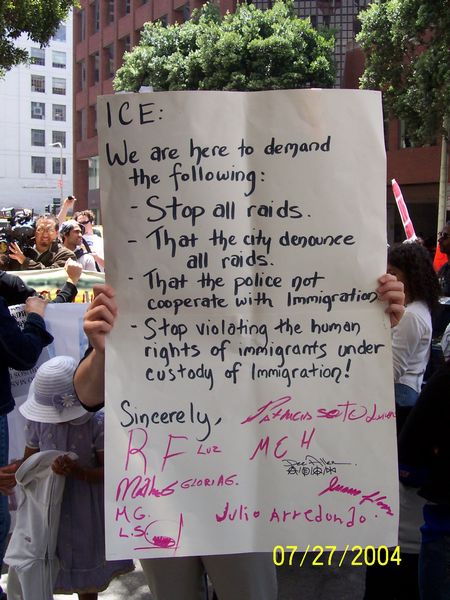 ICE:
We are here to demand
the following:
- Stop all raids.
- That the city denounce
all raids.
- That the police not
cooperate with Immigration
- Stop violating the human
rights of immigrants under
custody of Immigration!
Sincerely,
R F LUZ MEH
GLORIA G.
M.G.
L.S.
Julio Arredondo.
07/27/2004